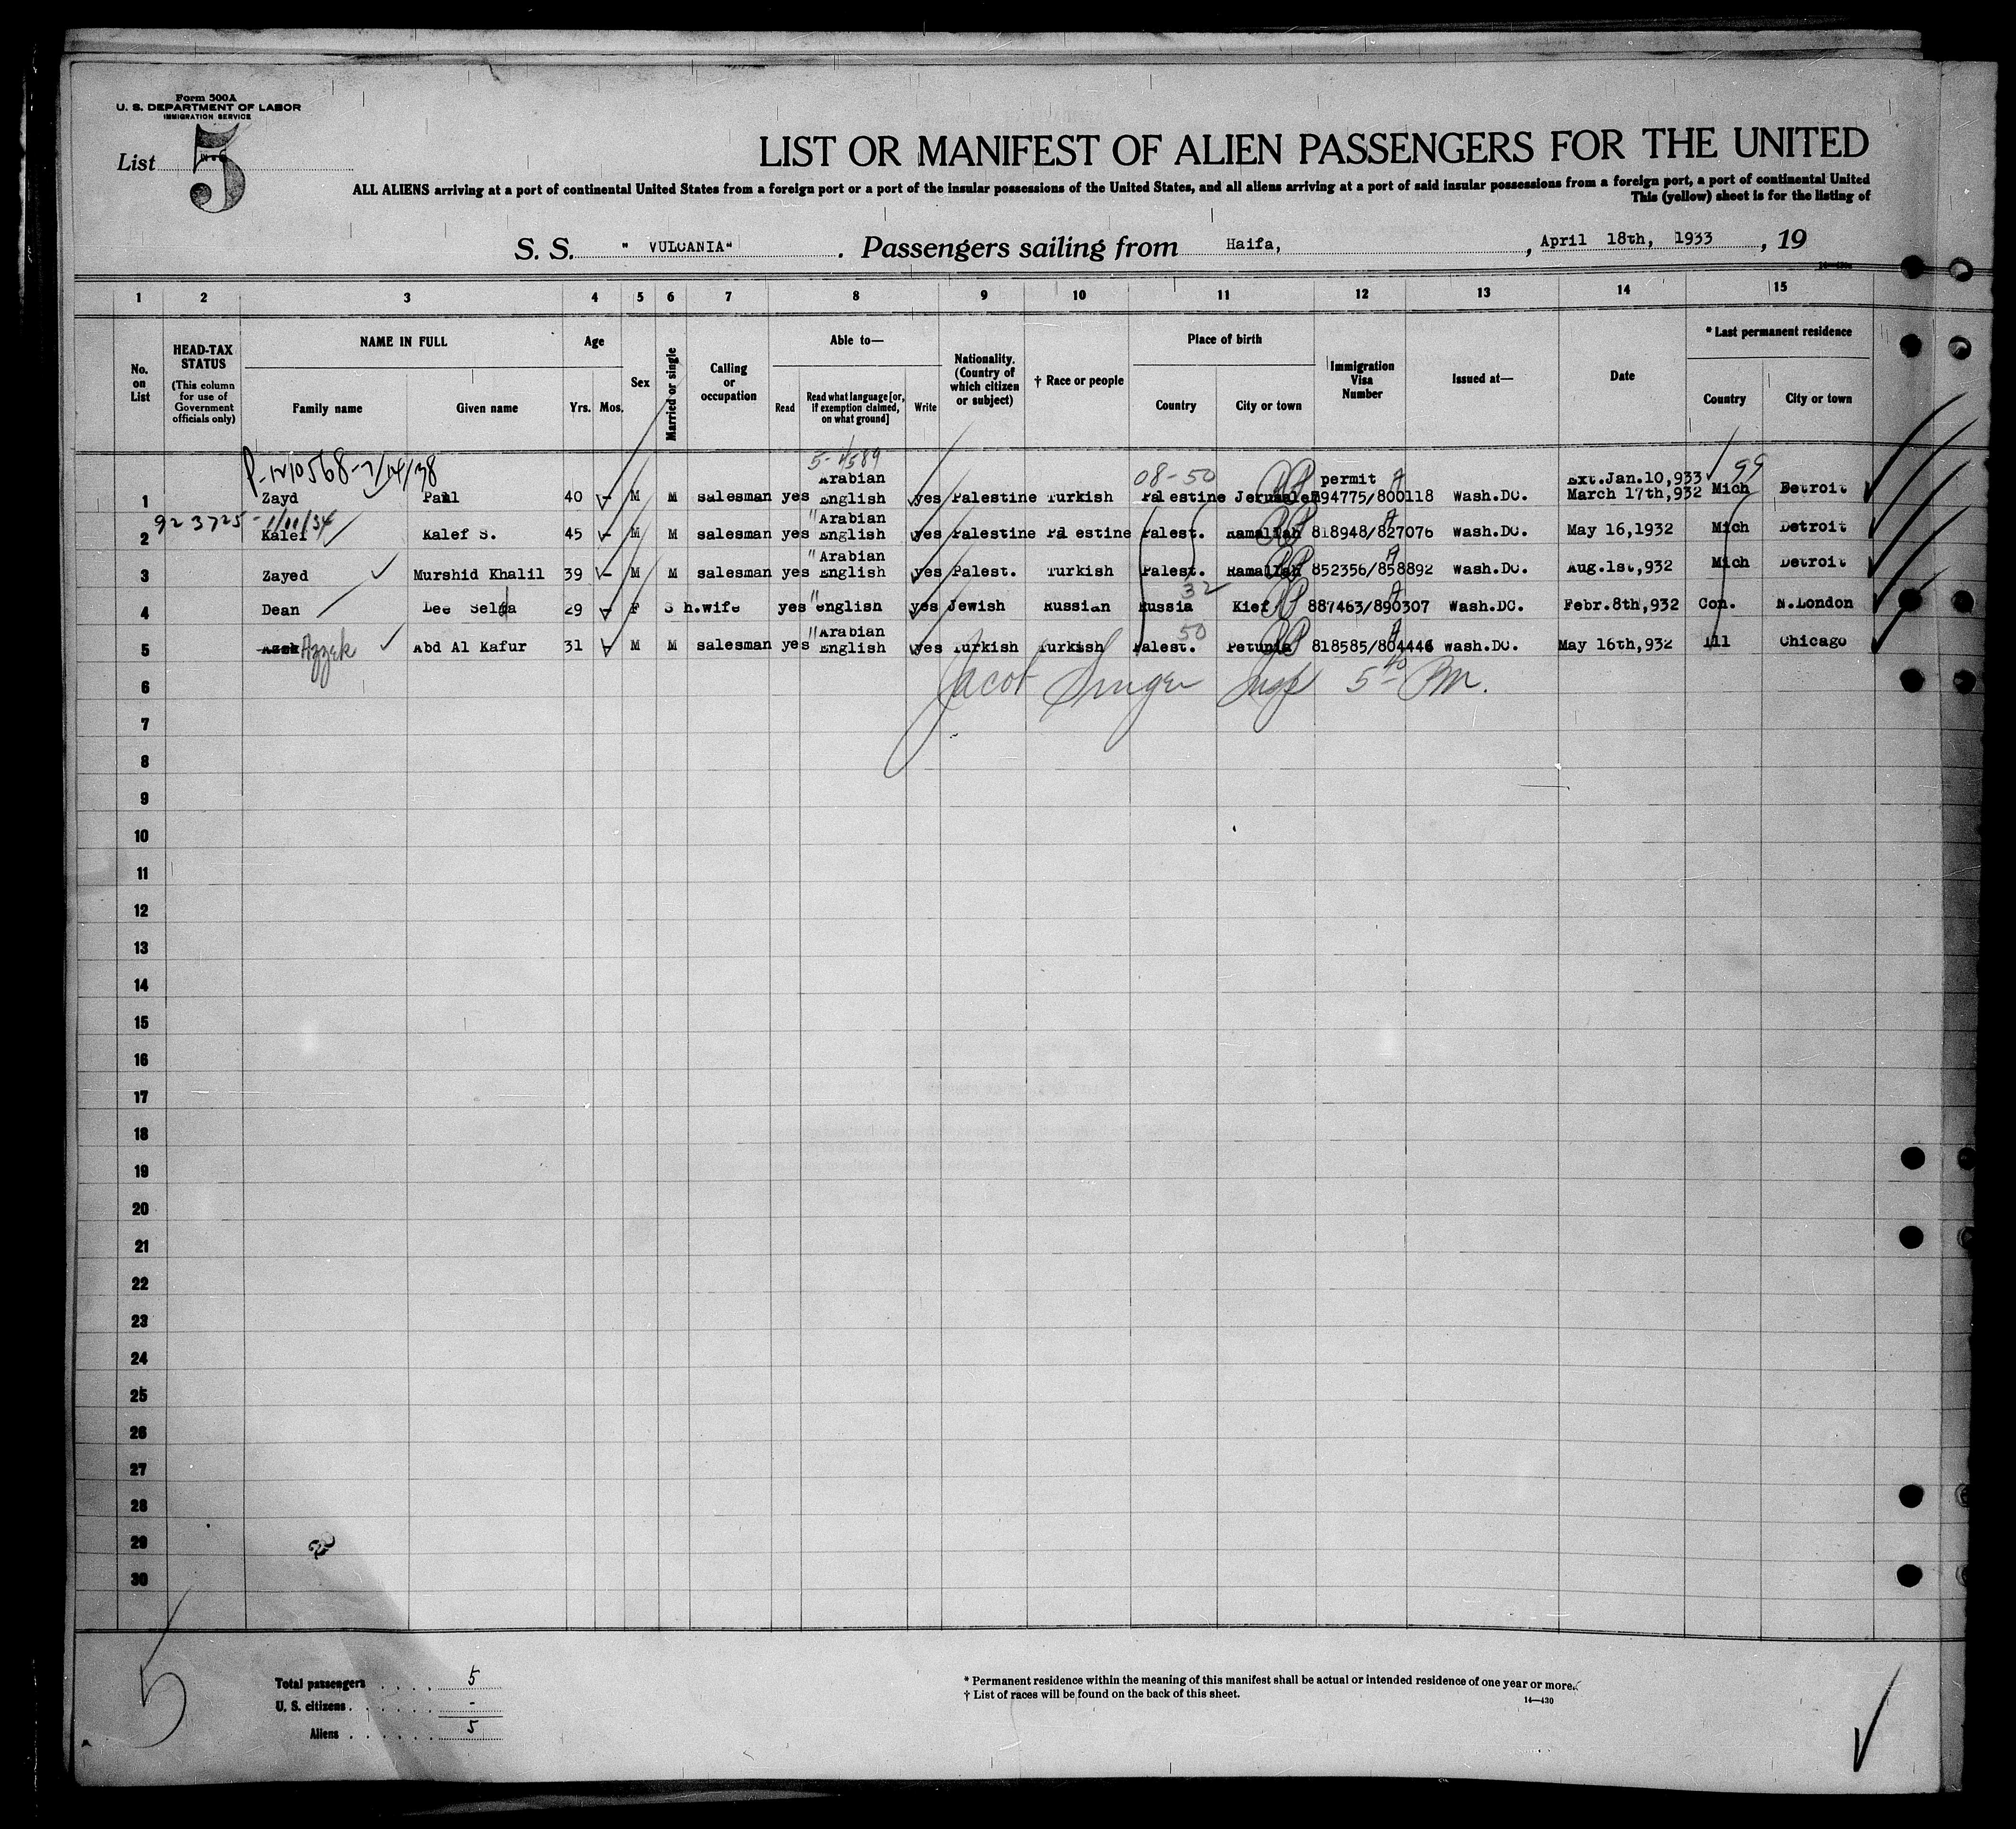 Form 500A
U. S. DEPARTMENT OF LABOR
IMMIGRATION SERVICE
List 5
LIST OR MANIFEST OF ALIEN PASSENGERS FOR THE UNITED
ALL ALIENS arriving at a port of continental United States from a foreign port or a port of the insular possessions of the United States, and all aliens arriving at a port of said insular possessions from a foreign port, a port of continental United
This (yellow) sheet is for the listing of
S. S. " VULCANIA" . Passengers sailing from Haifa, , April 18th, 1933 , 19
1 2 3 4 5 6 7 8 9 10 11 12 13 14 15
No. on List
HEAD-TAX STATUS (This column for use of Government officials only)
NAME IN FULL
Family name Given name
Age
Yrs. Mos.
Sex
Married or single
Calling or occupation
Able to—
Read Read what language [or, if exemption claimed, on what ground] Write
Nationality. (Country of which citizen or subject)
† Race or people
Place of birth
Country City or town
Immigration Visa Number
Issued at—
Date
* Last permanent residence
Country City or town
5- 4589
08-50 permit 99
Arabian Ext.Jan.10,933
1 Zayd Paul 40 M M salesman yes English yes Palestine Turkish Palestine Jerusalem 794775/800118 Wash.DC. March 17th,932 Mich Detroit
923725
Arabian
2 Kalef Kalef S. 45 M M salesman yes English yes Palestine Pa estine Palest. Ramallah 818948/827076 Wash.DC. May 16,1932 Mich Detroit
Arabian
3 Zayed Murshid Khalil 39 M M salesman yes English yes Palest. Turkish Palest. Ramallah 852356/858892 Wash.DC. Aug.1st,932 Mich Detroit
32
4 Dean Lee Selma 29 F S h.wife yes english yes Jewish Russian Russia Kief 887463/890307 Wash.DC. Febr.8th,932 Con. N.London
Arabian 50
5 Azzek Abd Al Kafur 31 M M salesman yes English yes Turkish Turkish Palest. Petunia 818585/804446 wash.DC. May 16th,932 Ill Chicago
6 Jacob Singer Insp
7
8
9
10
11
12
13
14
15
16
17
18
19
20
21
22
23
24
25
26
27
28
29
30
5
Total passengers . . . . 5
U. S. citizens . . . . . . -
Aliens . . . . . . 5
* Permanent residence within the meaning of this manifest shall be actual or intended residence of one year or more.
† List of races will be found on the back of this sheet.
14—430